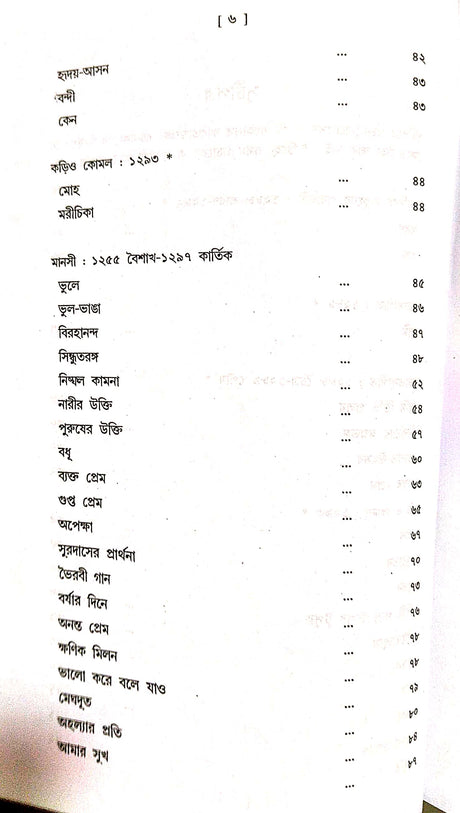 [ ৬ ]
হৃদয়-আসন ... ৪২
বন্দী ... ৪৩
কেন ... ৪৩
কড়িও কোমল : ১২৯৩ *
মোহ ... ৪৪
মরীচিকা ... ৪৪
মানসী : ১২৫৫ বৈশাখ-১২৯৭ কার্তিক
ভুলে ... ৪৫
ভুল-ভাঙা ... ৪৬
বিরহানন্দ ... ৪৭
সিন্ধুতরঙ্গ ... ৪৮
নিষ্ফল কামনা ... ৫২
নারীর উক্তি ... ৫৪
পুরুষের উক্তি ... ৫৭
বধূ ... ৬০
ব্যক্ত প্রেম ... ৬৩
গুপ্ত প্রেম ... ৬৫
অপেক্ষা ... ৬৭
সুরদাসের প্রার্থনা ... ৭০
ভৈরবী গান ... ৭৩
বর্ষার দিনে ... ৭৬
অনন্ত প্রেম ... ৭৮
ক্ষণিক মিলন ... ৭৮
ভালো করে বলে যাও ... ৭৯
মেঘদূত ... ৮০
অহল্যার প্রতি ... ৮৪
আমার সুখ ... ৮৭